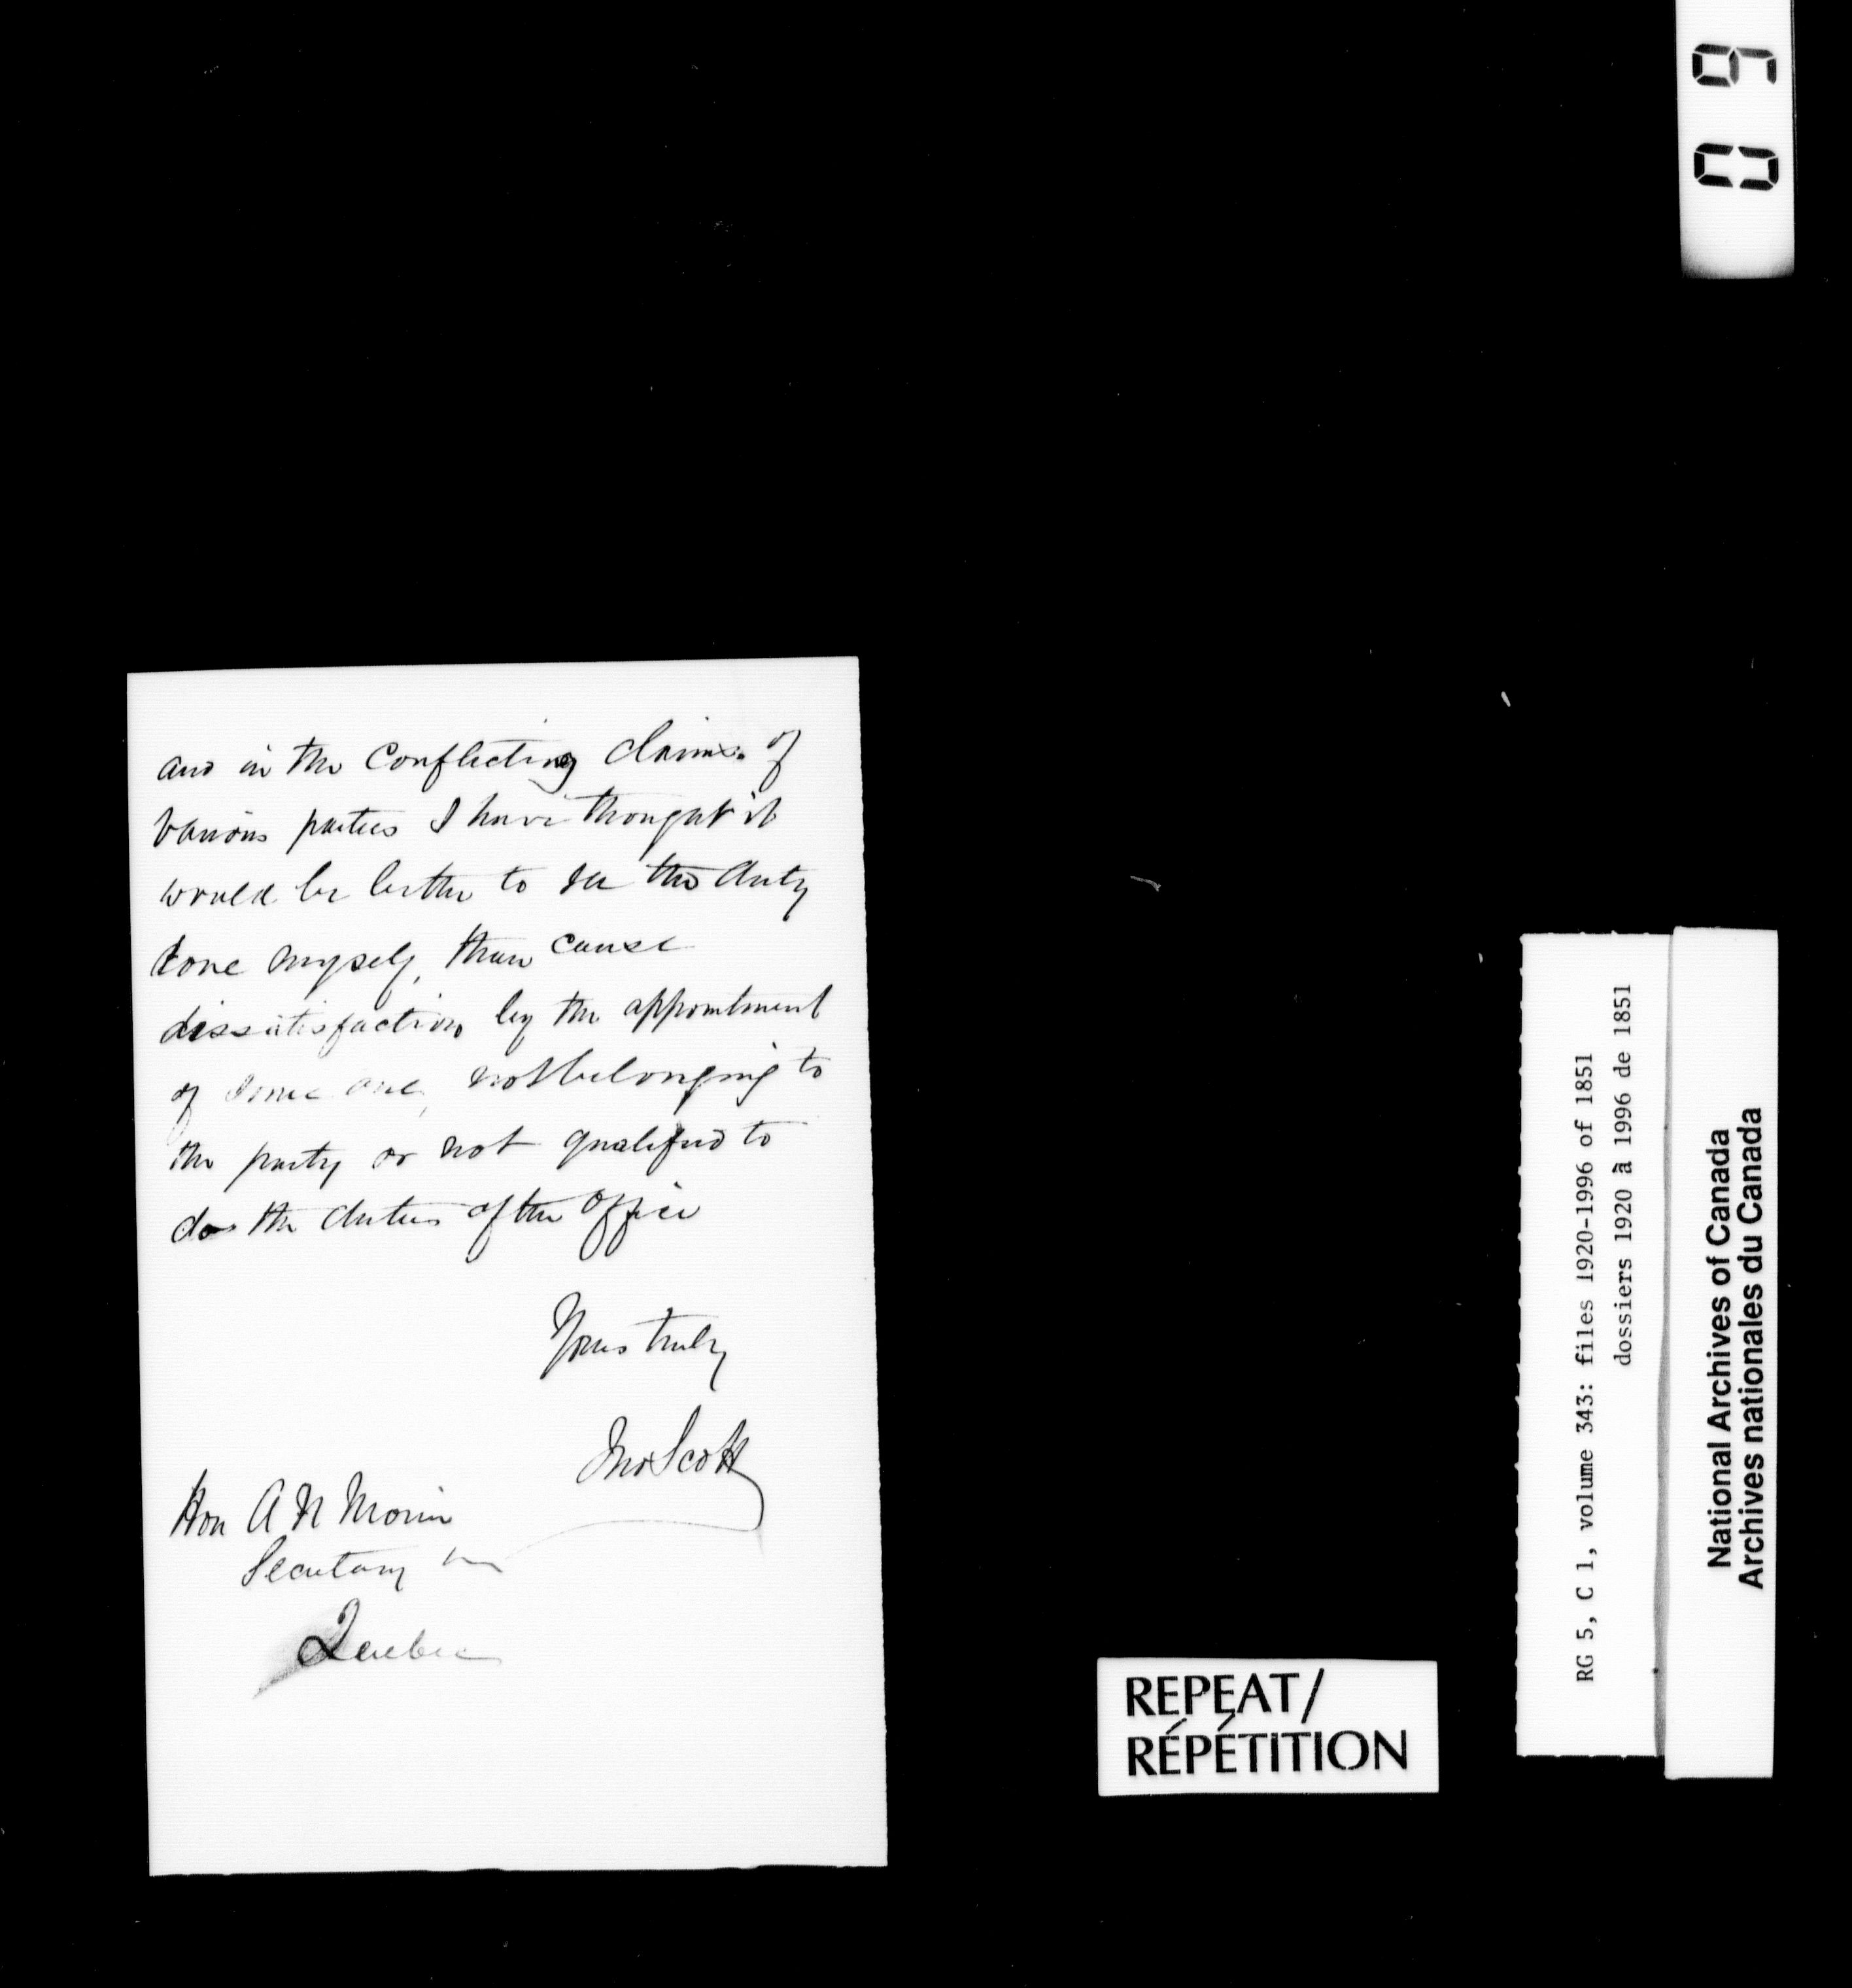 and in the Conflicting Claims of
various parties I have thought it
would be better to see the duty
done myself, than cause
dissatisfaction by the appointment
of some one, not belonging to
the party or not qualified to
do the duties of the office
Yours truly
Jno Scott
Hon A N Morin
Secretary
Quebec
REPEAT/
RÉPÉTITION
RG 5, C 1, volume 343: files 1920-1996 of 1851
dossiers 1920 à 1996 de 1851
National Archives of Canada
Archives nationales du Canada